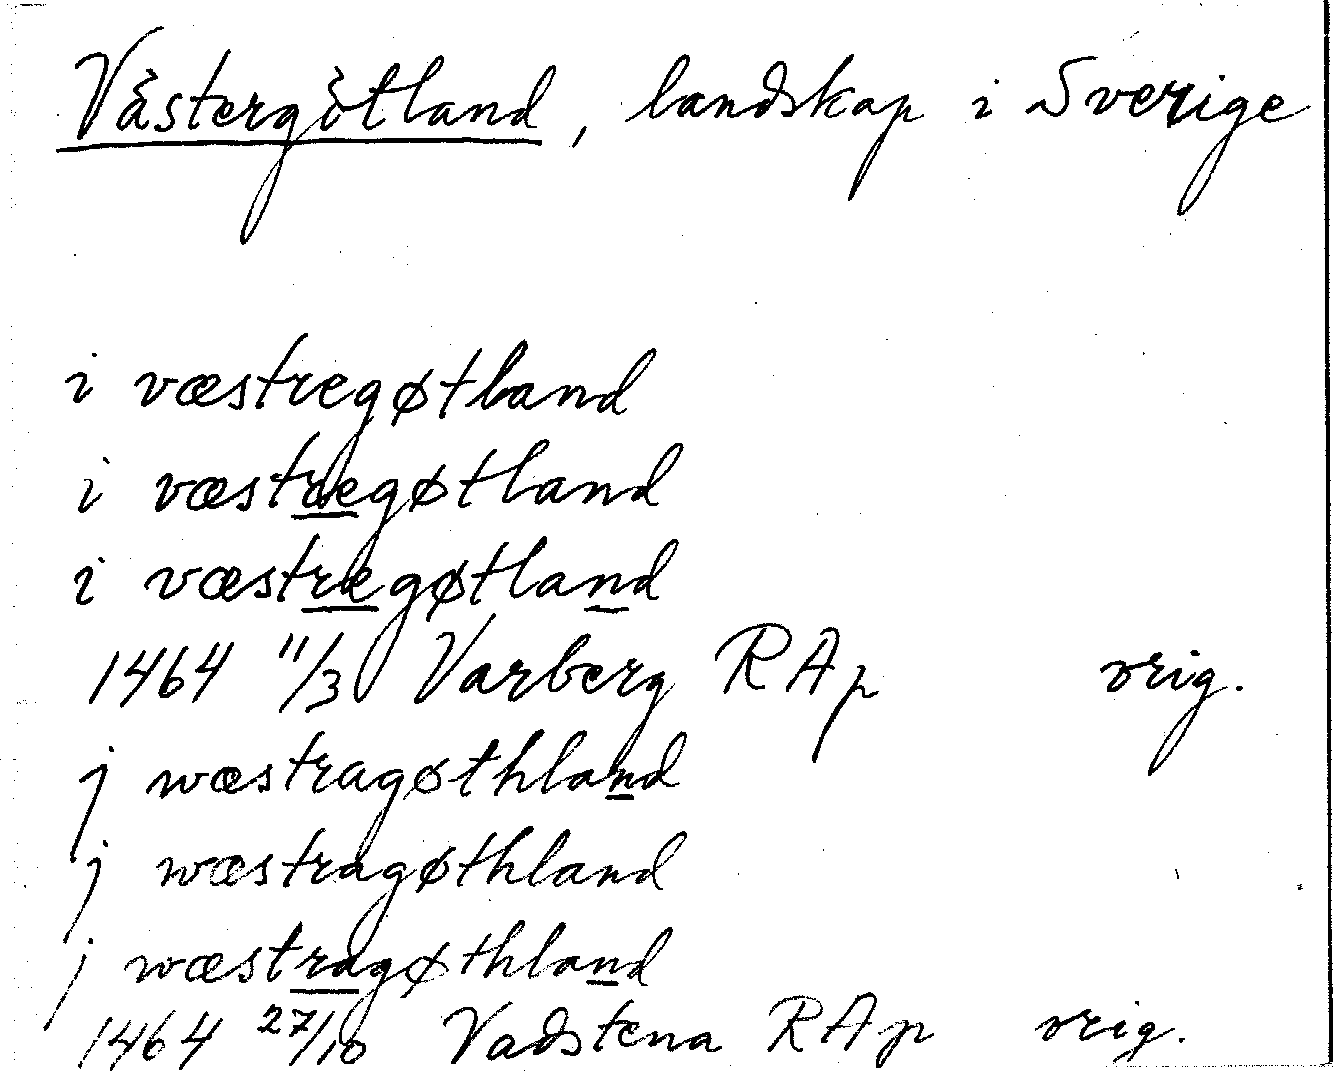 Västergötland, landskap i Sverige
i væstregøtland
i væstregøtland
i væstregøtland
1464 11/3 Varberg RAp orig.
j wæstragøthland
j wæstragøthland
j wæstragøthland
1464 27/10 Vadstena RAp orig.